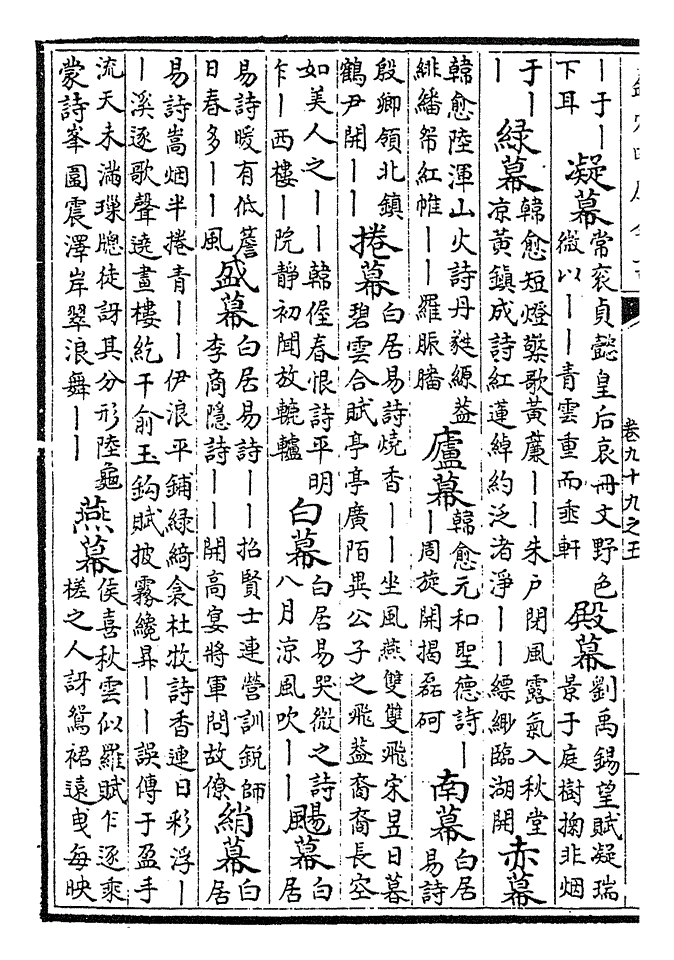 卷九十九之五
丨于丨
下耳
凝幕
常袞貞懿皇后哀冊文野色
微以丨丨青雲重而垂軒
殿幕
劉禹錫望賦凝瑞
景于庭樹掬非烟
于丨
丨
綠幕
韓愈短燈檠歌黃簾丨丨朱戶閉風露氣入秋堂
涼黃鎮成詩紅蓮綽約泛渚淨丨丨縹緲臨湖開
赤幕
韓愈陸渾山火詩丹蕤縓葢
緋繙帤紅帷丨丨羅脤膰
廬幕
韓愈元和聖德詩丨
丨周旋開揭磊砢
南幕
白居
易詩
殷卿領北鎮
鶴尹開丨丨
捲幕
白居易詩燒香丨丨坐風燕雙雙飛宋昱日暮
碧雲合賦亭亭廣陌異公子之飛葢裔裔長空
如美人之丨丨韓偓春恨詩平明
乍丨西樓丨院靜初聞放轆轤
白幕
白居易哭微之詩
八月涼風吹丨丨
颺幕
白
居
易詩暖有低簷
日春多丨丨風
盛幕
白居易詩丨丨招賢士連營訓銳師
李商隱詩丨丨開高宴將軍問故僚
綃幕
白
居
易詩嵩烟半捲青丨丨伊浪平鋪綠綺衾杜牧詩香連日彩浮丨
丨溪逐歌聲遶畫樓紇干俞玉鈎賦披霧纔昇丨丨誤傳于盈手
流天未滿璅牕徒訝其分形陸龜
蒙詩峯圍震澤岸翠浪舞丨丨
燕幕
侯喜秋雲似羅賦乍逐乘
槎之人訝鴛裙遠曳每映